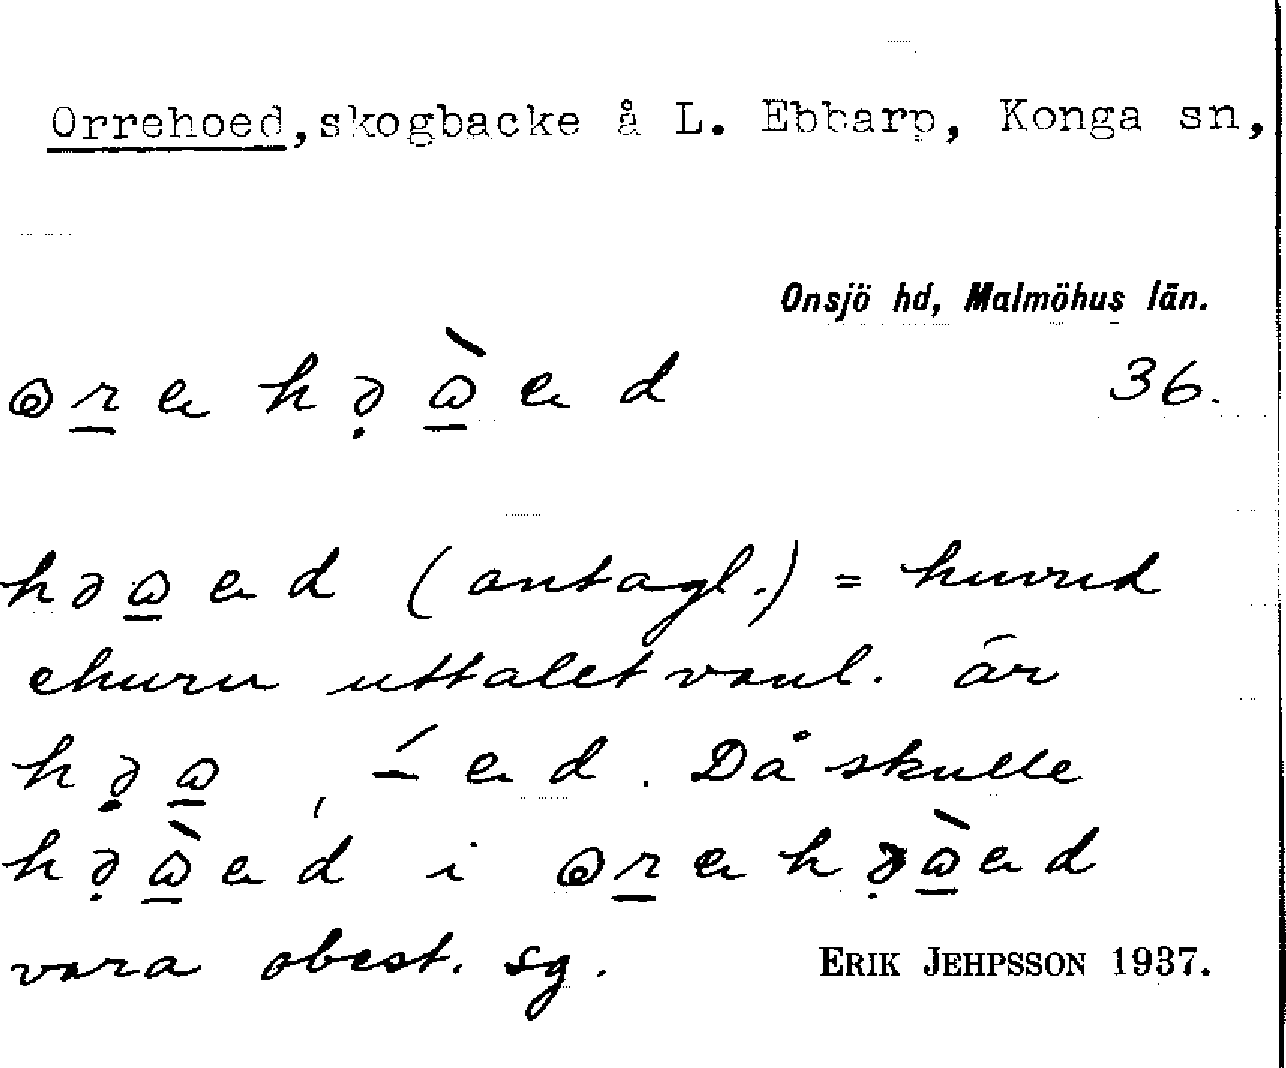 Orrehoed, skogbacke å L. Ebbarp, Konga sn,
Onsjö hd, Malmöhus län.
36.
(antagl.) = huvud
ehuru uttalet vanl. är
Då skulle
i
vara obest. sg.
ERIK JEHPSSON 1937.